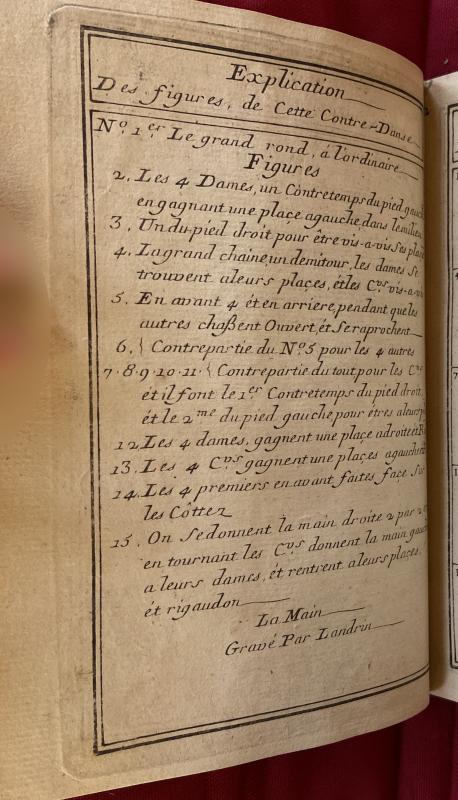 Explication
Des figures, de Cette Contre-Danse
No. 1er Le grand rond, á l'ordinaire
Figures
2. Les 4 Dames, un Contretemps du pied
en gagnant une plaçe agauche, dans le milieu
3. Un du pied droit pour être vis-a-vis ses
4. La grand chaine, un demi tour, les dames se
trouvent aleurs plaçes, ét les Crs vis-a-vis
5. En avant 4 ét en arriere, pendant que les
autres chaßent Ouvert, ét se raprochent
6. { Contrepartie du No. 5 pour les 4 autres
7. 8. 9. 10. 11. { Contrepartie du tout pour les
ét il font le 1er Contretemps du pied droit,
ét le 2me du pied gauche pour étres aleurs
12. Les 4 dames, gagnent une plaçe adroite
13. Les 4 Crs gagnent une plaçes agauche
14. Les 4 premiers en avant faites façe sur
les Côttez
15. On se donnent la main droite 2 par 2
en tournant les Crs donnent la main
a leurs dames, ét rentrent aleurs plaçes,
ét rigaudon
La Main
Gravé Par Landrin